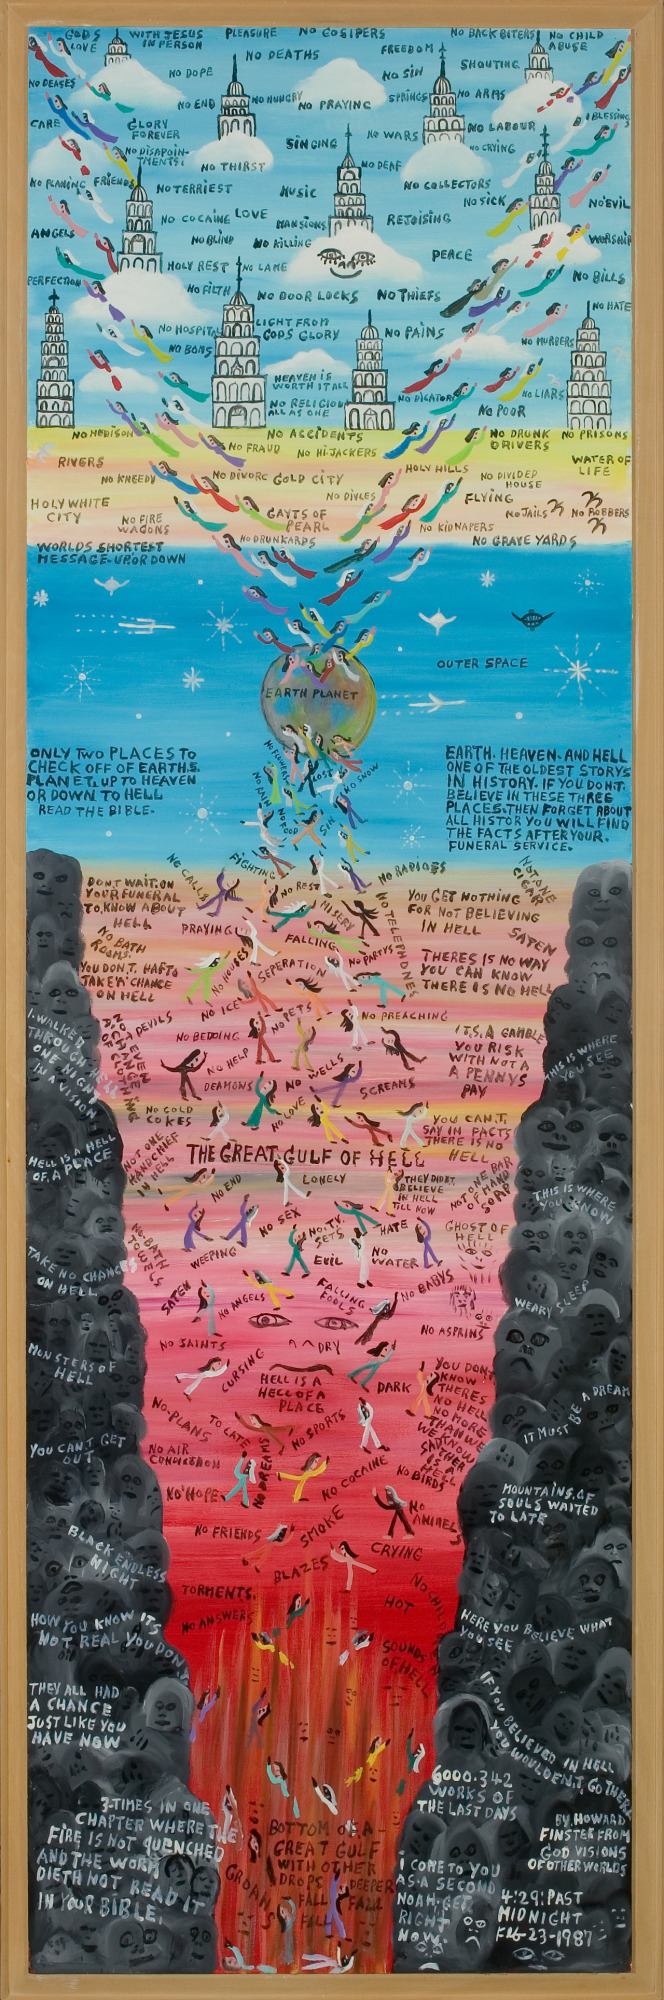 GODS
LOVE
WITH JESUS
IN PERSON
PLEASURE
NO GOSIPERS
FREEDOM
NO BACK BITERS
NO CHILD
ABUSE
NO DEATHS
NO SIN
SHOUTING
NO DOPE
NO DEASES
NO END
NO HUNGRY
NO PRAYING
SPRINGS
NO ARMS
CARE
GLORY
FOREVER
NO WARS
NO LABOUR
BLESSING
NO DISAPOIN-
TMENTS.
SINGING
NO CRYING
NO THIRST
NO DEAF
NO PLANING
FRIENDS
NO TERRIEST
MUSIC
NO COLLECTORS
NO SICK
NO EVIL
NO COCAINE
LOVE
MANSIONS
REJOISING
ANGELS
NO BLIND
NO KILLING
PEACE
WORSHIP
HOLY REST
NO LAME
PERFECTION
NO FILTH
NO DOOR LOCKS
NO THIEFS
NO BILLS
NO HATE
NO HOSPITAL
LIGHT FROM
GODS GLORY
NO PAINS
NO MURDERS
NO BOMS
HEAVEN IS
WORTH IT ALL
NO RELIGION
ALL AS ONE
NO DICATORS
NO LIARS
NO POOR
NO MEDISON
NO ACCIDENTS
NO FRAUD
NO HIJACKERS
NO DRUNK
DRIVERS
NO PRISONS
RIVERS
WATER OF
LIFE
NO KNEEDY
NO DIVORC
GOLD CITY
HOLY HILLS
NO DIVIDED
HOUSE
HOLY WHITE
CITY
NO FIRE
WAGONS
GAYTS OF
PEARL
NO DIVLES
FLYING
NO JAILS
NO ROBBERS
NO KIDNAPERS
NO DRUNKARDS
NO GRAVE YARDS
WORLDS SHORTEST
MESSAGE-UP OR DOWN
OUTER SPACE
EARTH PLANET
ONLY TWO PLACES TO
CHECK OFF OF EARTH.S.
PLANET. UP TO HEAVEN
OR DOWN TO HELL
READ THE BIBLE.
EARTH. HEAVEN-AND HELL
ONE OF THE OLDEST STORYS
IN HISTORY. IF YOU DON.T.
BELIEVE IN THESE THREE
PLACES. THEN FORGET ABOUT
ALL HISTOR YOU WILL FIND
THE FACTS AFTER YOUR.
FUNERAL SERVICE.
NO FLOWERS
NO RAIN
LOST
NO SNOW
NO GOD
SIN
NO CALLS
FIGHTING
NO RADIOES
NOT ONE
CIGAR
DON.T WAIT ON
YOUR FUNERAL
TO KNOW ABOUT
HELL
NO REST
MISERY
NO TELEPHONES
YOU GET NOTHING
FOR NOT BELIEVING
IN HELL
SATEN
NO BATH
ROOMS.
PRAYING
FALLING
YOU DON.T. HAFTO
TAKE "A" CHANCE
ON HELL
NO HOUSES
SEPERATION
NO PARTYS
THERES IS NO WAY
YOU CAN KNOW
THERE IS NO HELL
NO ICE
NO PETS
NO PREACHING
I.WALKED
THROUGH HELL
ONE NIGHT
IN A VISION
DEVILS
NOT EVEN
A CHANGE
OF CLOTHING
NO BEDDING
IT.S. A GAMBLE
YOU RISK
WITH NOT A
A PENNYS
PAY
THIS IS WHERE
YOU SEE
NO HELP
NO WELLS
DEAMONS
SCREAMS
NO COLD
COKES
NO LOVE
YOU CAN.T.
SAY IN FACTS
THERE IS NO
HELL
THE GREAT GULF OF HELL
HELL IS A HELL
OF. A PLACE
NOT ONE
HANDCHIEF
IN HELL
NO END
LONELY
THEY DIDNT
BELIEVE
IN HELL
TILL NOW
NOT ONE BAR
OF HAND
SOAP
THIS IS WHERE
YOU KNOW
NO SEX
NO. T.V.
SETS
HATE
GHOST OF
HELL
NO BATH
TOWELS
WEEPING
EVIL
NO
WATER
TAKE NO CHANCES
ON HELL
SATEN
NO ANGELS
FALLING
FOOLS
NO BABYS
WEARY SLEEP
DRY
NO ASPRINS
NO SAINTS
CURSING
HELL IS A
HELL OF A
PLACE
DARK
MONSTERS OF
HELL
YOU DON.T
KNOW
THERES
NO HELL
NO MORE
THAN WE
KNOW
IT MUST BE A DREAM
NO-PLANS
TO LATE
NO SPORTS
YOU CAN.T GET
OUT
NO AIR
CONDICTSION
NO DREAMS
NO COCAINE
NO BIRDS
NO HOPE
MOUNTAINS. OF
SOULS WAITED
TO LATE
NO
ANIMELS
NO FRIENDS
SMOKE
CRYING
BLACK ENDLESS
NIGHT
BLAZES
TORMENTS.
HOT
NO CHILD
NO ANSWERS
HOW YOU KNOW ITS
NOT REAL YOU DON,T
HERE YOU BELIEVE WHAT
YOU SEE
SOUNDS
OF HELL
THEY ALL HAD
A CHANCE
JUST LIKE YOU
HAVE NOW
IF YOU BELIEVED IN HELL
YOU WOULDEN.T. GO THERE
6000.342
WORKS OF
THE LAST DAYS
3-TIMES IN ONE
CHAPTER WHERE THE
FIRE IS NOT QUENCHED
AND THE WORM
DIETH NOT READ IT
IN YOUR BIBLE.
BOTTOM OF A-
GREAT GULF
WITH OTHER
DROPS DEEPER
FALL FALL
FALL
GROANS
BY. HOWARD
FINSTER FROM
GOD VISIONS
OF OTHER WORLDS
I COME TO YOU
AS. A SECOND
NOAH-GET
RIGHT
NOW.
4:29: PAST
MIDNIGHT
FEB-23-1987